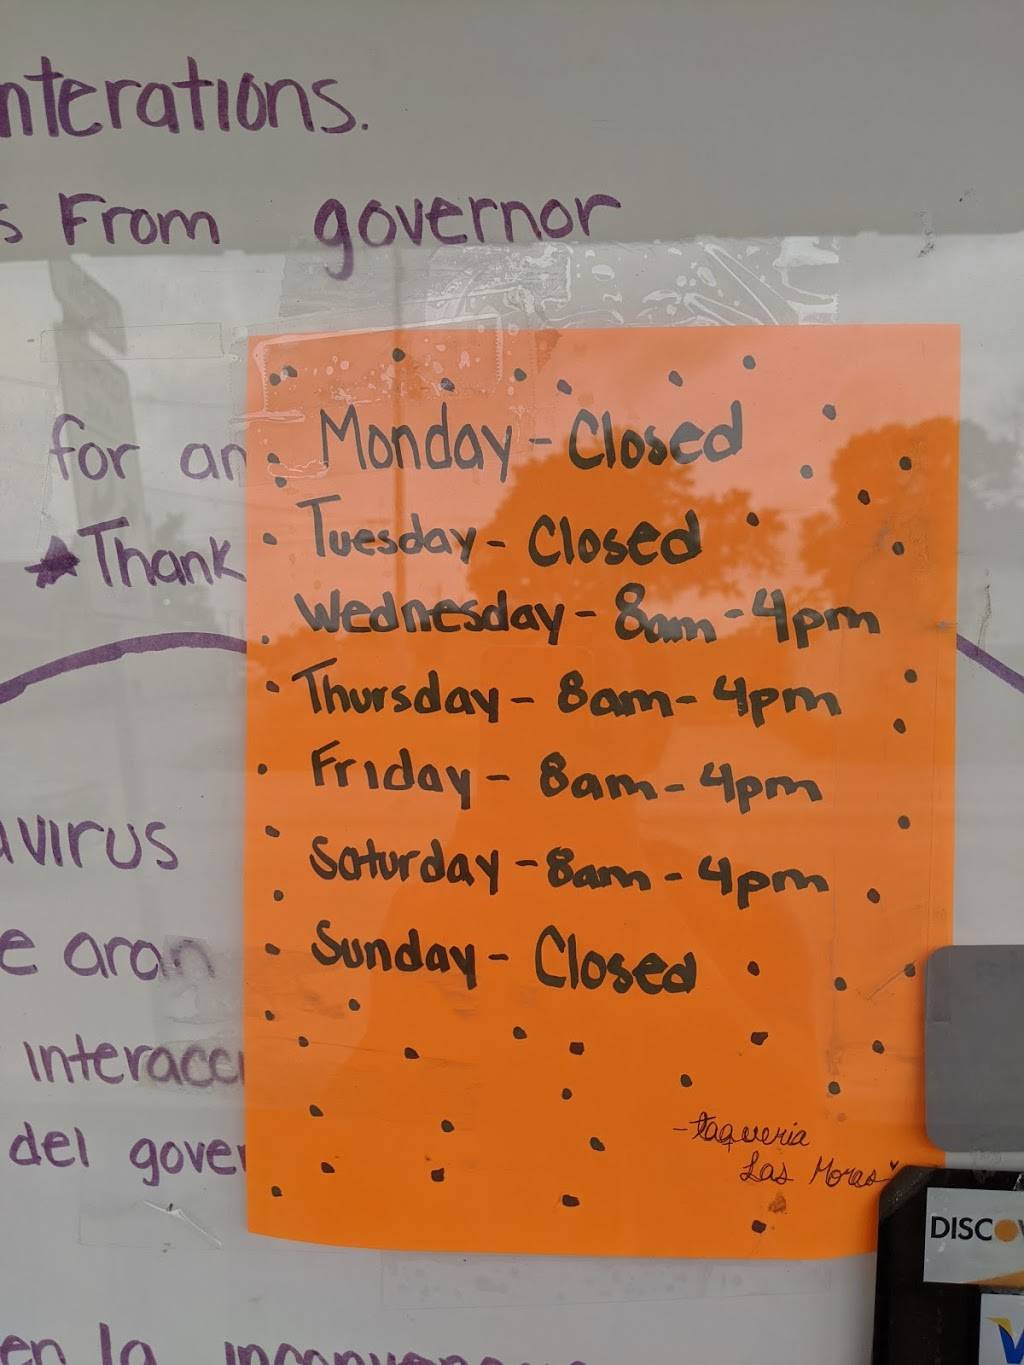 nterations.
s From governor
for an
Thank
Monday - Closed
Tuesday - Closed
Wednesday - 8am - 4pm
Thursday - 8am - 4pm
Friday - 8am - 4pm
Saturday - 8am - 4pm
Sunday - Closed
- taqueria
Las Moras
avirus
e aran
interacci
del gover
en la inconvenienc
DISCOV
V